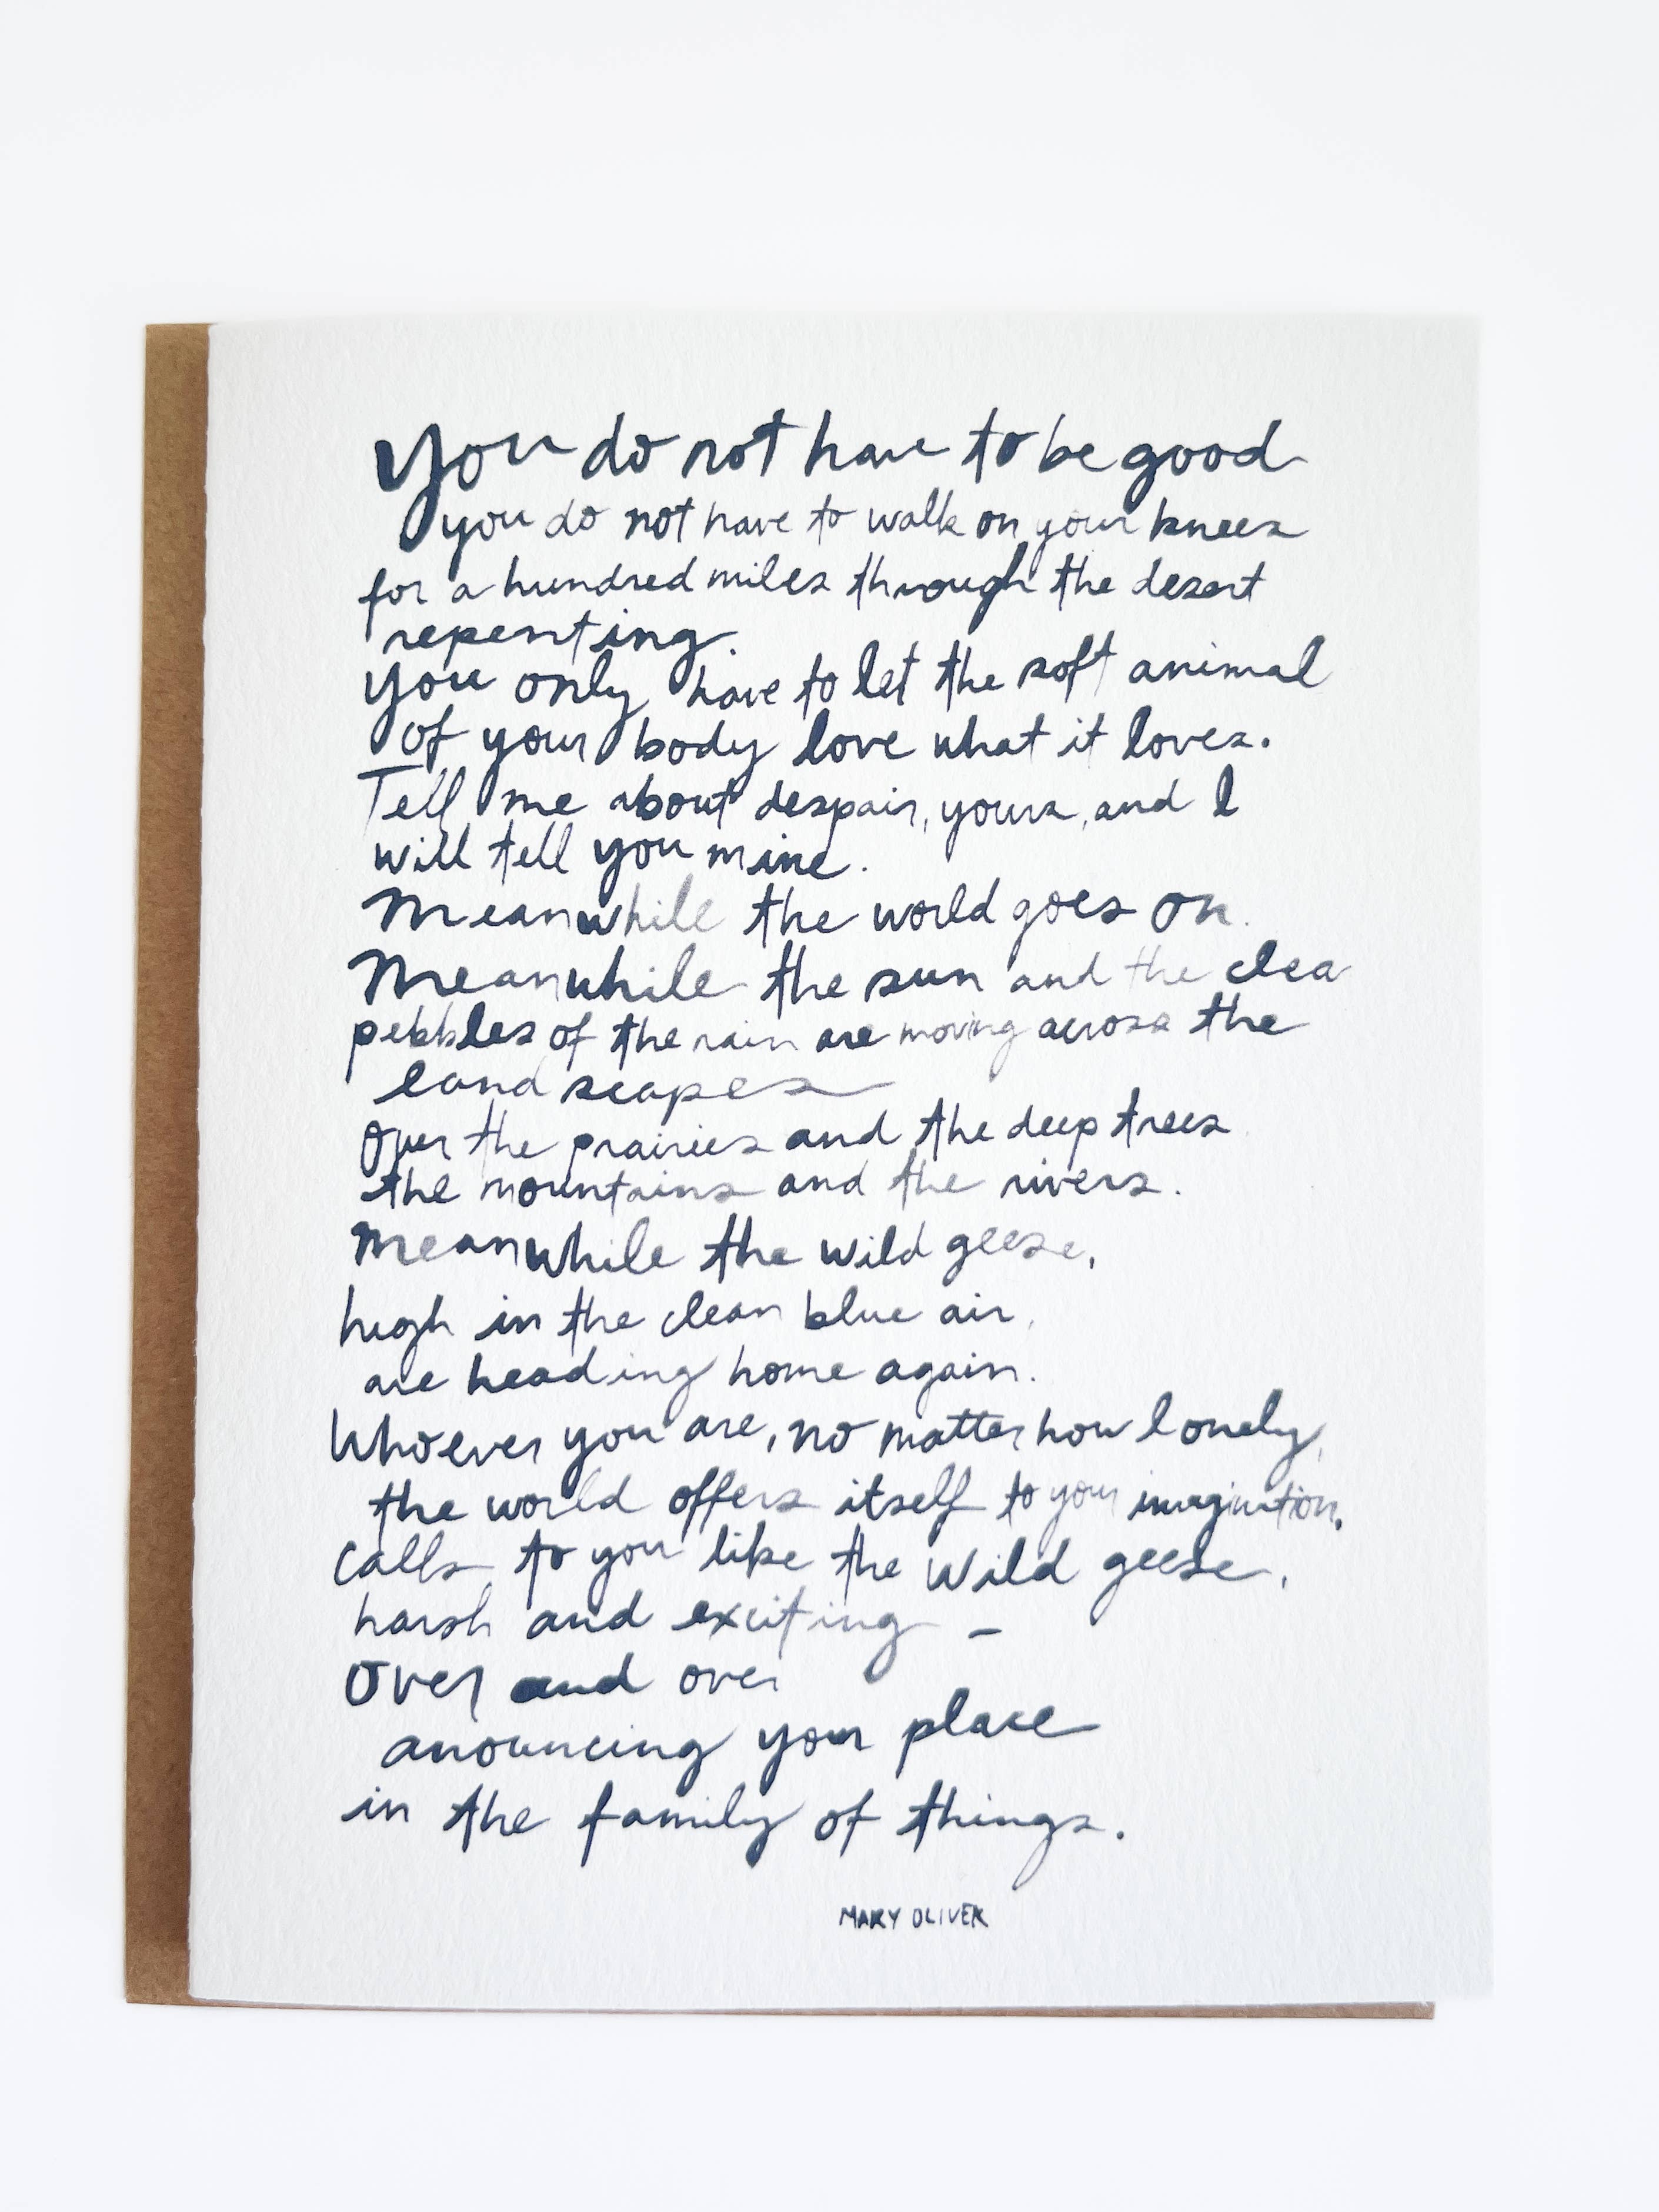 You do not have to be good
you do not have to walk on your knees
for a hundred miles through the desert
repenting.
you only have to let the soft animal
of your body love what it loves.
Tell me about despair, yours, and I
will tell you mine.
Meanwhile the world goes on.
Meanwhile the sun and the clea
pebbles of the rain are moving across the
landscapes
Over the prairies and the deep trees
the mountains and the rivers.
Meanwhile the wild geese,
high in the clean blue air,
are heading home again.
Whoever you are, no matter how lonely,
the world offers itself to your imagination,
calls to you like the wild geese,
harsh and exciting –
over and over
anouncing your place
in the family of things.
MARY OLIVER